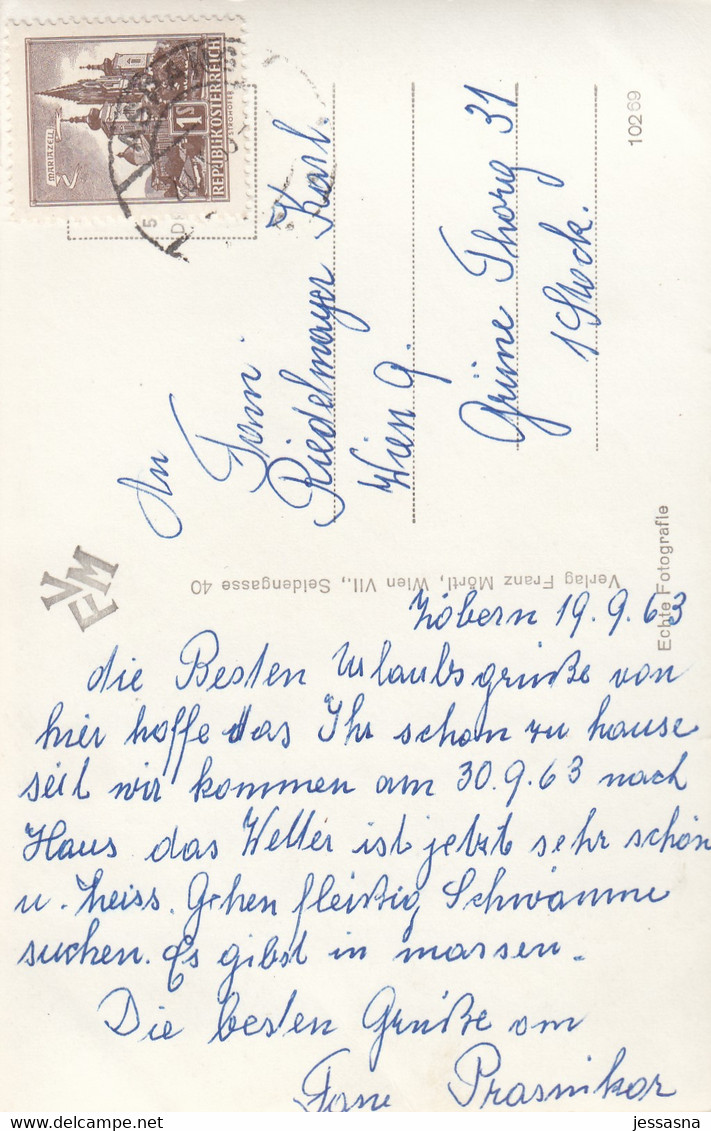 MARIAZELL
1S
REPUBLIK ÖSTERREICH
STROHOFER
An
Fam.
Riedelmayer Karl.
Wien 9.
Grüne Thorg 31
1 Stock.
10269
Echte Fotografie
Verlag Franz Mörtl, Wien VII., Seidengasse 40
FVM
Zöbern 19.9.63
die Besten Urlaubsgrüße von
hier hoffe das Ihr schon zu hause
seit wir kommen am 30.9.63 nach
Haus das Wetter ist jetzt sehr schön
u. heiss. Gehen fleißig Schwämme
suchen. Es gibst in massen.
Die besten Grüße von
Fam Prasnikar
jessasna